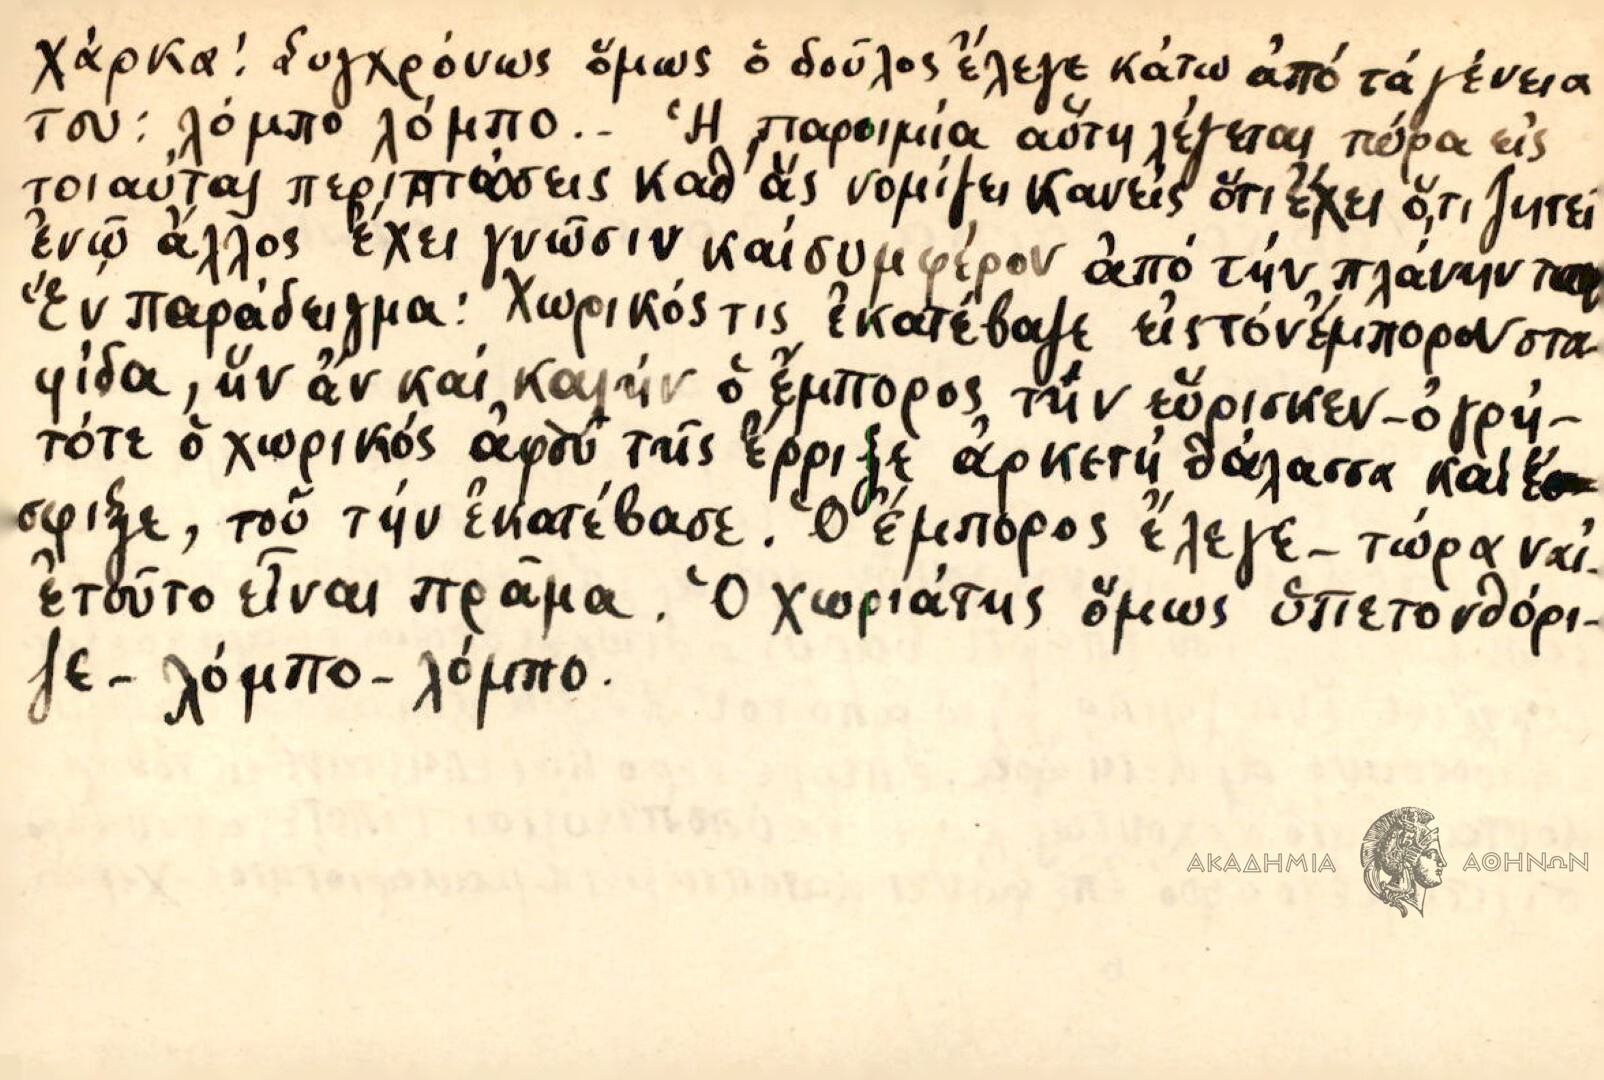 χάρκα! Συγχρόνως ὅμως ὁ δοῦλος ἔλεγε κάτω ἀπό τά γένεια
του: λόμπο λόμπο.- Ἡ παροιμία αὕτη λέγεται τώρα εἰς
τοιαύτας περιπτώσεις καθ' ἅς νομίζει κανείς ὅτι ἔχει ὅ,τι ζητεῖ
ἐνῶ ἄλλος ἔχει γνῶσιν καί συμφέρον ἀπό τήν πλάνην
Ἕν παράδειγμα: Χωρικός τις ἐκατέβαζε εἰς τόν ἔμπορον στα-
φίδα, ἥν ἄν καί καλήν ὁ ἔμπορος τήν εὕρισκεν - ὀγρή -
τότε ὁ χωρικός ἀφοῦ τῆς ἔρριξε ἀρκετή θάλασσα καί ἔ
σφιξε, τοῦ τήν ἐκατέβασε. Ὁ ἔμπορος ἔλεγε - τώρα ναί.
ἐτοῦτο εἶναι πρᾶμα. Ὁ χωριάτης ὅμως ὑπετονθόρι-
ζε - λόμπο - λόμπο.
ΑΚΑΔΗΜΙΑ ΑΘΗΝΩΝ